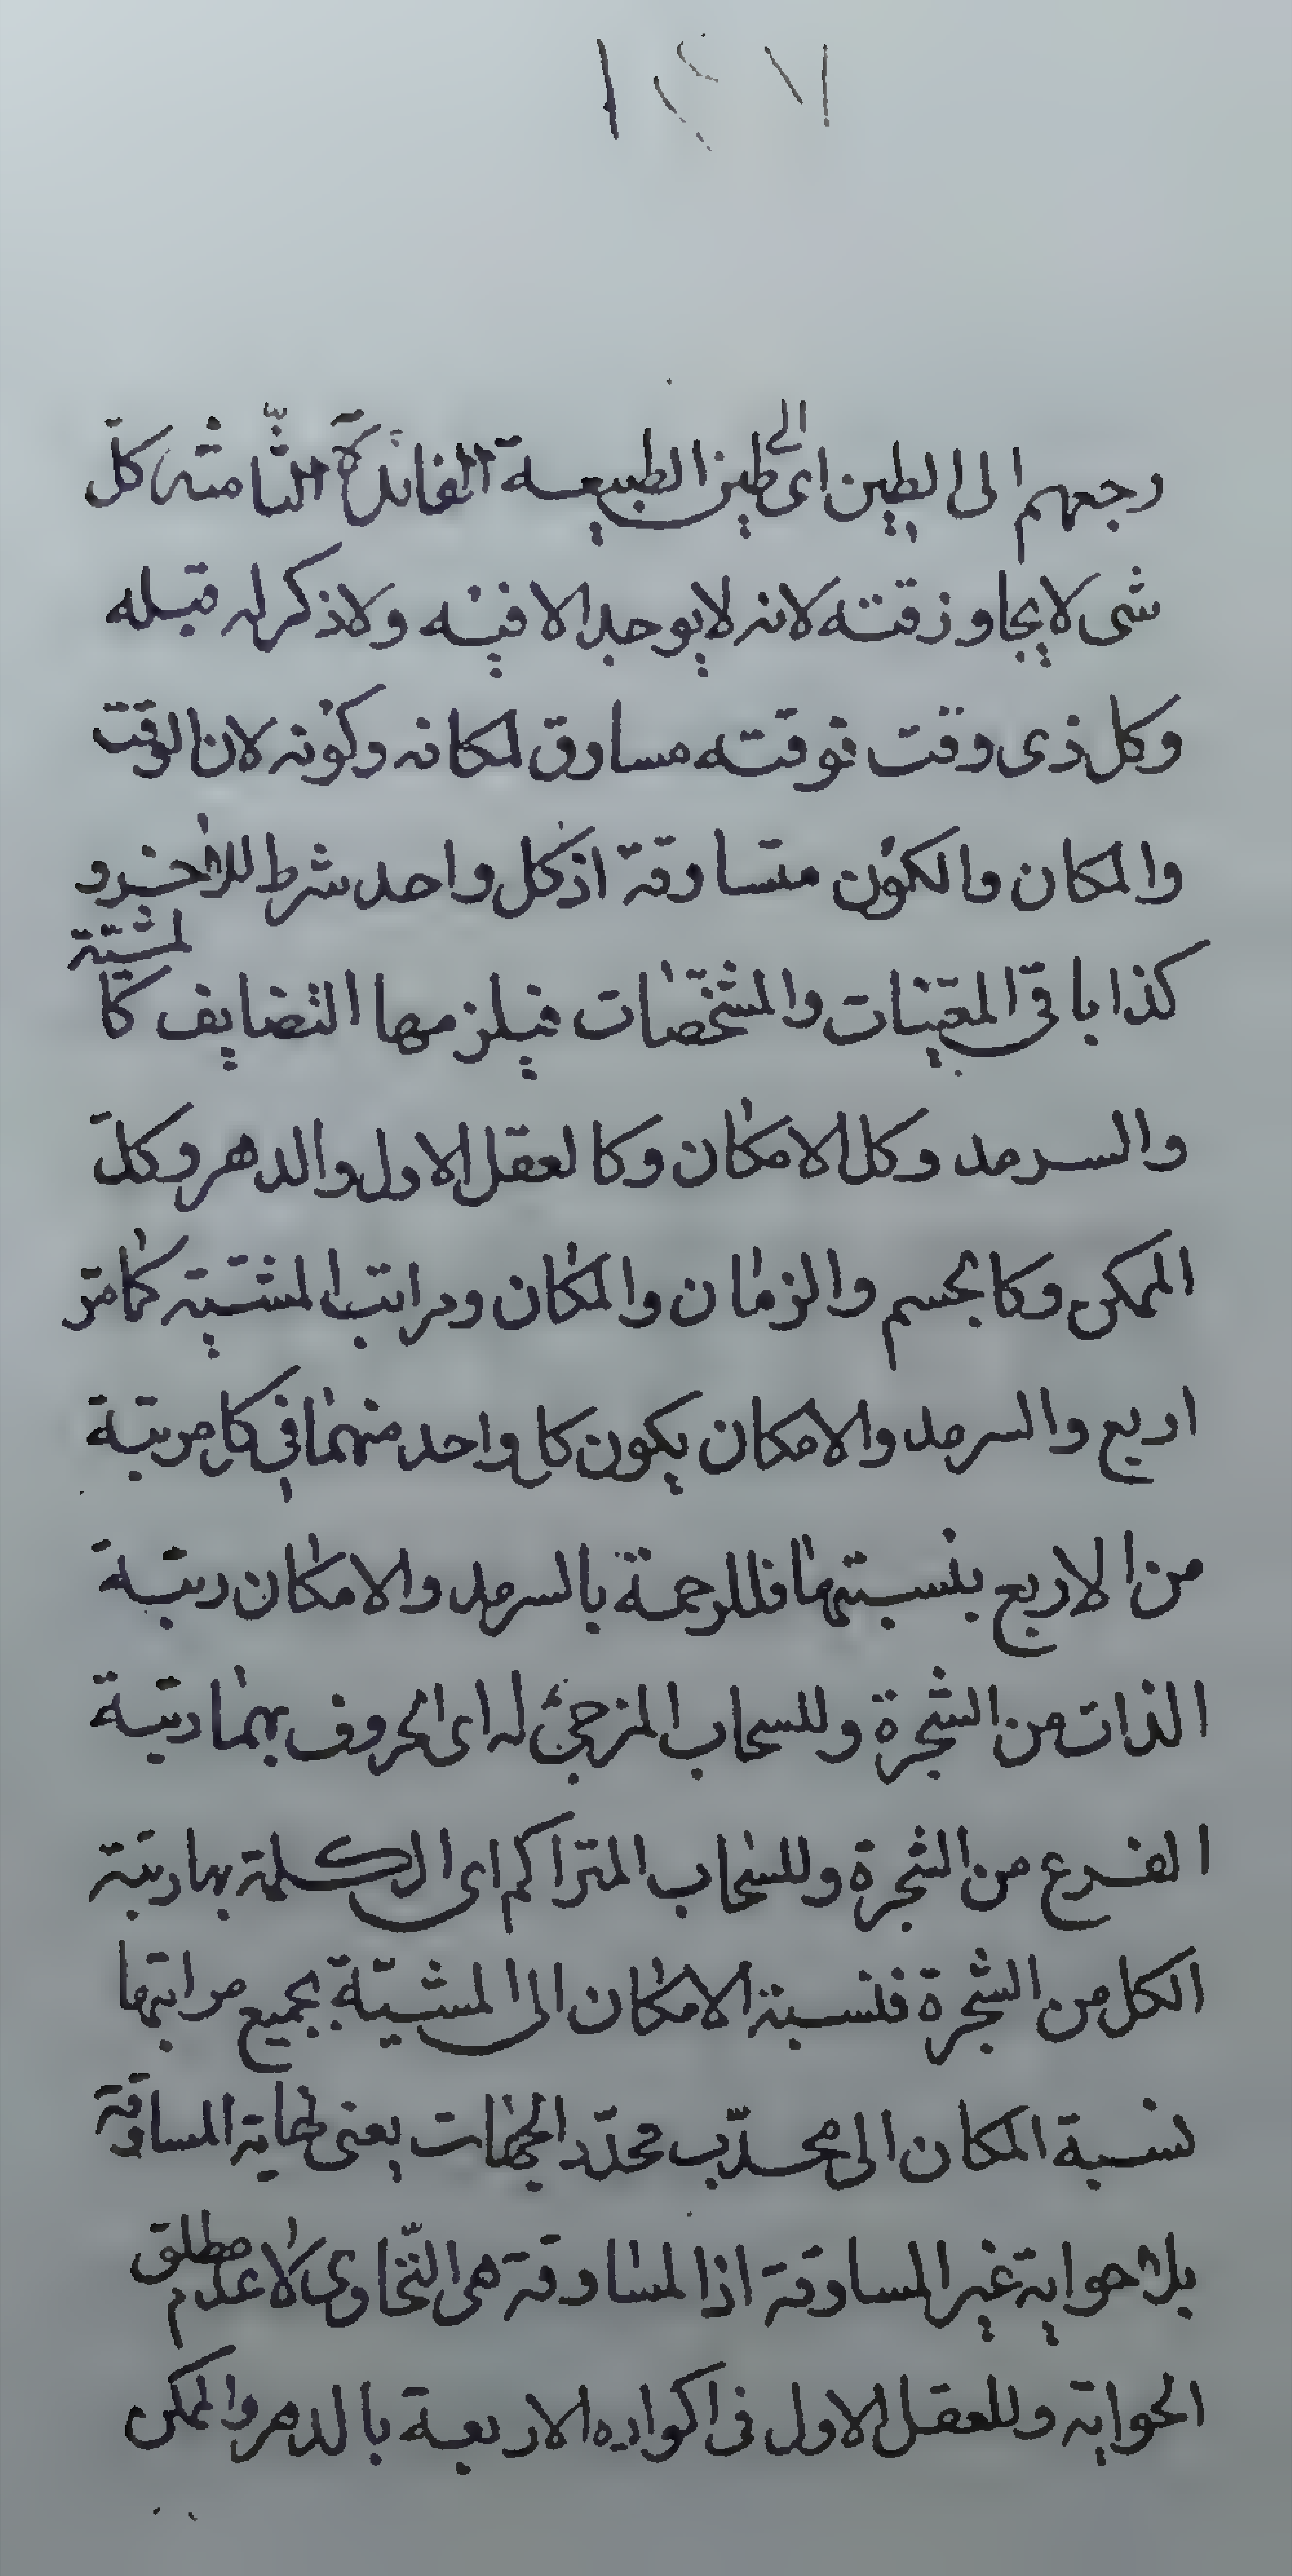 رجعهم الى الطين اى الى طين الطبيعة الفائدة الثامنة كل
شى لا يجاوز وقته لانه لا يوجد الا فيه ولا ذكر له قبله
وكل ذى وقت فوقته مساوق لمكانه وكونه لان الوقت
والمكان والكون متساوقة اذ كل واحد شرط للاخر و
كذا باقى المعينات والمشخصات فيلزمها التضايف كالمشية
والسرمد وكل الامكان وكالعقل الاول والدهر وكل
الممكن وكالجسم والزمان والمكان ومراتب المشية كما مر
اربع والسرمد والامكان يكون كل واحد منهما فى كل مرتبة
من الاربع بنسبتها فللرحمة بالسرمد والامكان رتبة
الذات من الشجرة وللسحاب المزجى له اى الحروف بهما رتبة
الفرع من الشجرة وللسحاب المتراكم اى الكلمة بها رتبة
الكل من الشجرة فنسبة الامكان الى المشية بجميع مراتبها
نسبة المكان الى محدب محدد الجهات يعنى نهاية المساوقة
بلا حواية غير المساوقة اذ المساوقة هى التحاوى لا عدم مطلق
الحواية وللعقل الاول فى اكواره الاربعة بالدهر والممكن